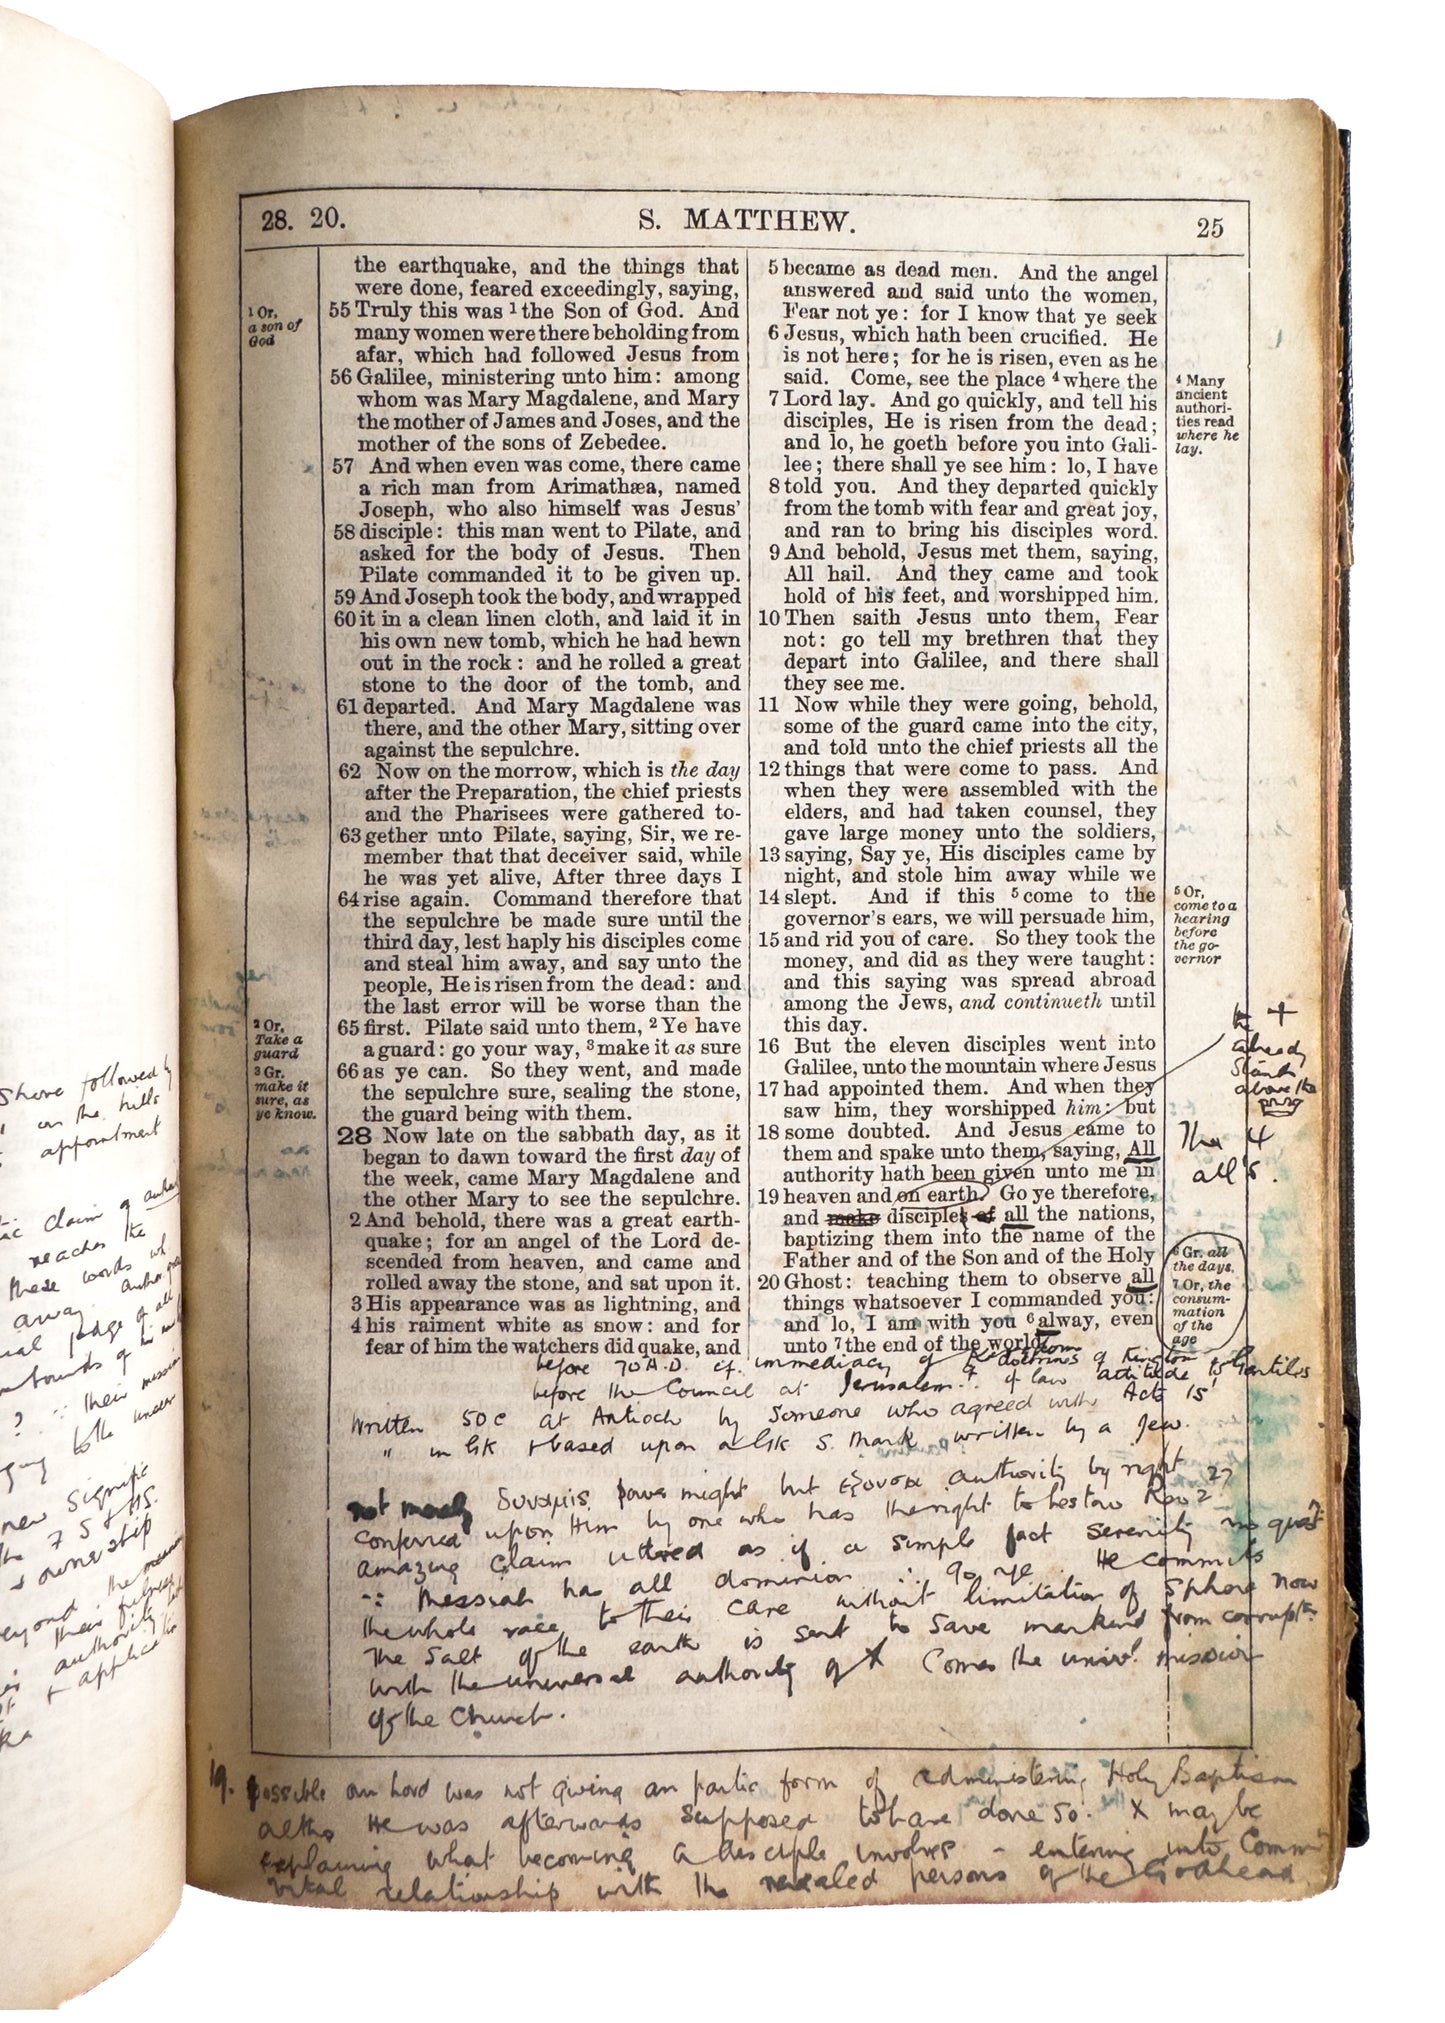 28. 20.
S. MATTHEW.
25
1 Or,
a son of
God
2 Or,
Take a
guard
3 Gr.
make it
sure, as
ye know.
the earthquake, and the things that
were done, feared exceedingly, saying,
55 Truly this was 1 the Son of God. And
many women were there beholding from
afar, which had followed Jesus from
56 Galilee, ministering unto him: among
whom was Mary Magdalene, and Mary
the mother of James and Joses, and the
mother of the sons of Zebedee.
57 And when even was come, there came
a rich man from Arimathæa, named
Joseph, who also himself was Jesus'
58 disciple: this man went to Pilate, and
asked for the body of Jesus. Then
Pilate commanded it to be given up.
59 And Joseph took the body, and wrapped
60 it in a clean linen cloth, and laid it in
his own new tomb, which he had hewn
out in the rock: and he rolled a great
stone to the door of the tomb, and
61 departed. And Mary Magdalene was
there, and the other Mary, sitting over
against the sepulchre.
62 Now on the morrow, which is the day
after the Preparation, the chief priests
and the Pharisees were gathered to-
63 gether unto Pilate, saying, Sir, we re-
member that that deceiver said, while
he was yet alive, After three days I
64 rise again. Command therefore that
the sepulchre be made sure until the
third day, lest haply his disciples come
and steal him away, and say unto the
people, He is risen from the dead: and
the last error will be worse than the
65 first. Pilate said unto them, 2 Ye have
a guard: go your way, 3 make it as sure
66 as ye can. So they went, and made
the sepulchre sure, sealing the stone,
the guard being with them.
28 Now late on the sabbath day, as it
began to dawn toward the first day of
the week, came Mary Magdalene and
the other Mary to see the sepulchre.
2 And behold, there was a great earth-
quake; for an angel of the Lord de-
scended from heaven, and came and
rolled away the stone, and sat upon it.
3 His appearance was as lightning, and
4 his raiment white as snow: and for
fear of him the watchers did quake, and
5 became as dead men. And the angel
answered and said unto the women,
Fear not ye: for I know that ye seek
6 Jesus, which hath been crucified. He
is not here; for he is risen, even as he
said. Come, see the place 4 where the
7 Lord lay. And go quickly, and tell his
disciples, He is risen from the dead;
and lo, he goeth before you into Gali-
lee; there shall ye see him: lo, I have
8 told you. And they departed quickly
from the tomb with fear and great joy,
and ran to bring his disciples word.
9 And behold, Jesus met them, saying,
All hail. And they came and took
hold of his feet, and worshipped him.
10 Then saith Jesus unto them, Fear
not: go tell my brethren that they
depart into Galilee, and there shall
they see me.
11 Now while they were going, behold,
some of the guard came into the city,
and told unto the chief priests all the
12 things that were come to pass. And
when they were assembled with the
elders, and had taken counsel, they
gave large money unto the soldiers,
13 saying, Say ye, His disciples came by
night, and stole him away while we
14 slept. And if this 5 come to the
governor's ears, we will persuade him,
15 and rid you of care. So they took the
money, and did as they were taught:
and this saying was spread abroad
among the Jews, and continueth until
this day.
16 But the eleven disciples went into
Galilee, unto the mountain where Jesus
17 had appointed them. And when they
saw him, they worshipped him: but
18 some doubted. And Jesus came to
them and spake unto them, saying, All
authority hath been given unto me in
19 heaven and on earth. Go ye therefore,
and make disciples of all the nations,
baptizing them into the name of the
Father and of the Son and of the Holy
20 Ghost: teaching them to observe all
things whatsoever I commanded you:
and lo, I am with you 6 alway, even
unto 7 the end of the world.
4 Many
ancient
authori-
ties read
where he
lay.
5 Or,
come to a
hearing
before
the go-
vernor
the +
already
stands
above the
The 4
all's.
6 Gr. all
the days.
7 Or, the
consum-
mation
of the
age
before 70 A.D. cf. immediacy of doctrines of Kingdom
before the Council at Jerusalem of law attitude to Gentiles
Written 50 c at Antioch by someone who agreed with Acts 15
" in Gk & based upon a Gk S. Mark written by a Jew.
not merely δυναμις power might but εξουσια authority by right
conferred upon Him by one who has the right to bestow Rev 2 27
amazing claim uttered as if a simple fact serenity no quest?
∵ Messiah has all dominion ∴ go ye. He commits
the whole race to their care without limitation of sphere now
The Salt of the earth is sent to save mankind from corruptn.
with the universal authority of X comes the univl. mission
of the Church.
19. possible our Lord was not giving an partic form of administering Holy Baptism
altho He was afterwards supposed to have done so. X may be
explaining what becoming a disciple involves - entering into Commn
vital relationship with the revealed persons of the Godhead
shore followed by
on the hills
appointment
claim of
reaches the
these words
away
pledge of all
bounds of his
? ∵ their mission
to the under
new signific
the 7 5 of
& ownership
beyond the
their
authority
& application